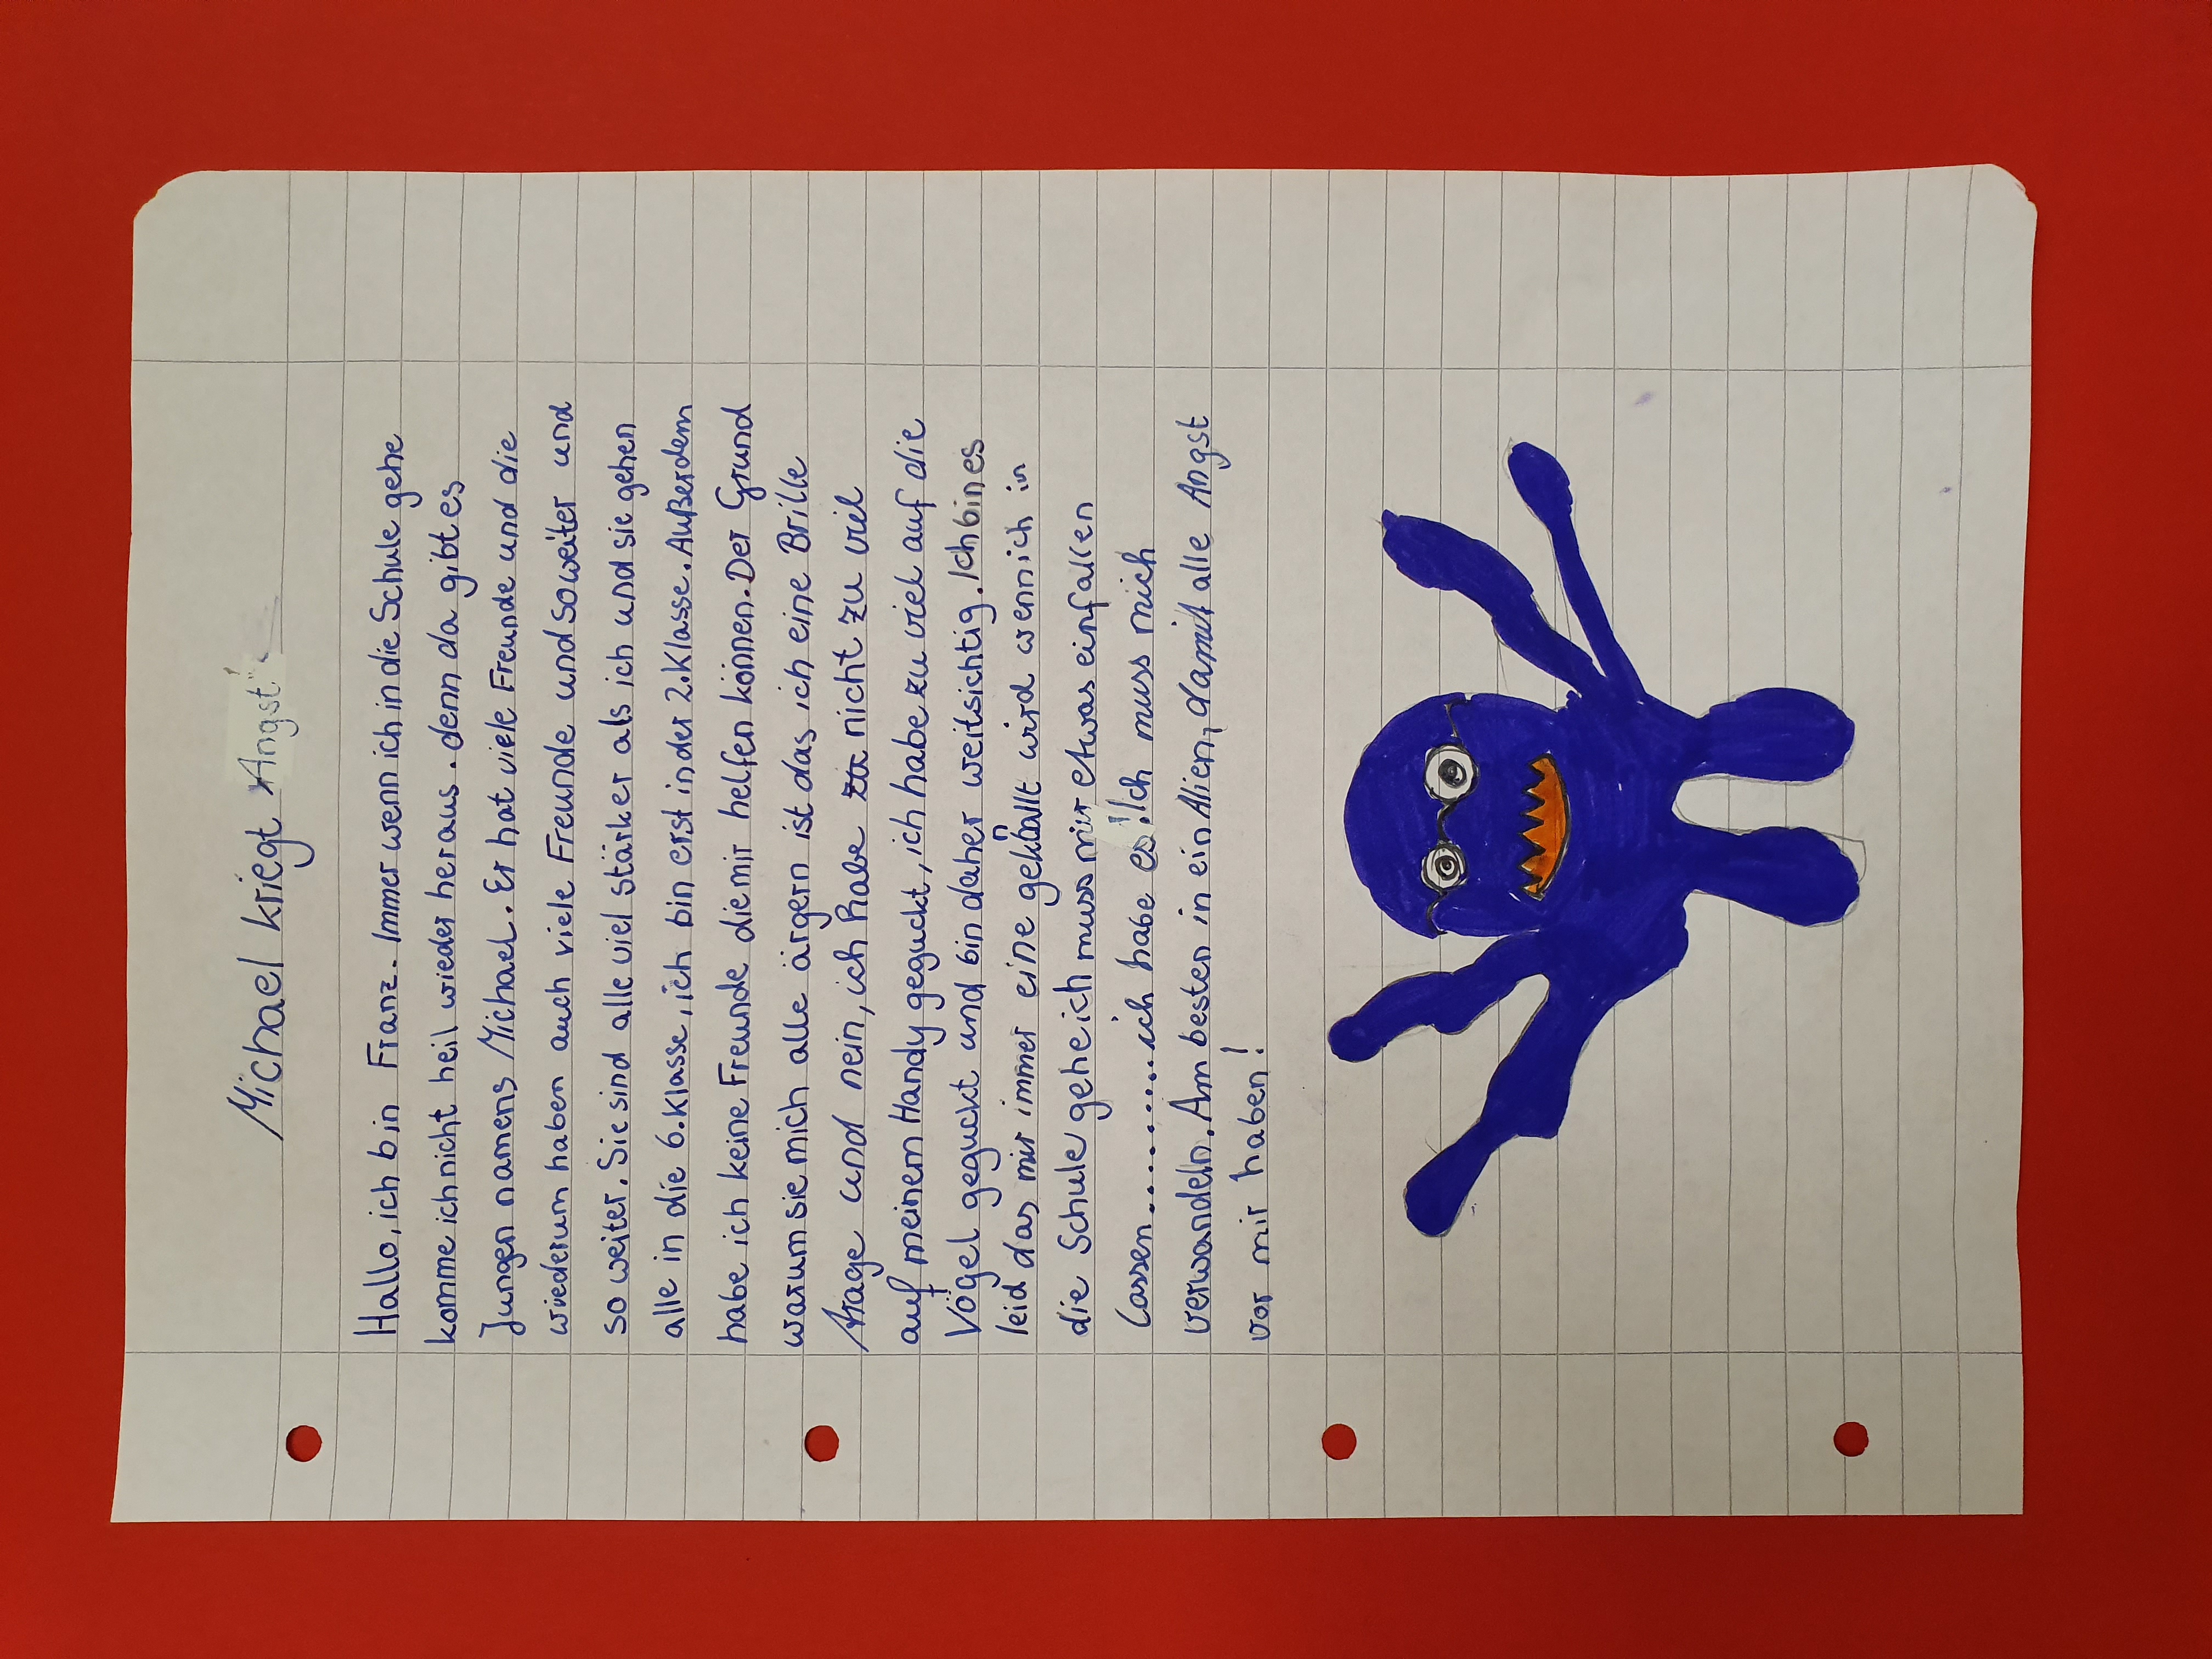 Michael kriegt Angst
Hallo, ich bin Franz. Immer wenn ich in die Schule gehe
komme ich nicht heil wieder heraus. denn da gibt es
Jungen namens Michael. Er hat viele Freunde und die
wiederum haben auch viele Freunde und soweiter und
so weiter. Sie sind alle viel stärker als ich und sie gehen
alle in die 6. Klasse, ich bin erst in der 2. Klasse. Außerdem
habe ich keine Freunde die mir helfen können. Der Grund
warum sie mich alle ärgern ist das ich eine Brille
trage und nein, ich habe nicht zu viel
auf meinem Handy geguckt, ich habe zu viel auf die
Vögel geguckt und bin daher weitsichtig. Ich bin es
leid das mir immer eine geknallt wird wenn ich in
die Schule gehe ich muss mir etwas einfallen
lassen............ich habe es!!Ich muss mich
verwandeln. Am besten in ein Alien, damit alle Angst
vor mir haben!